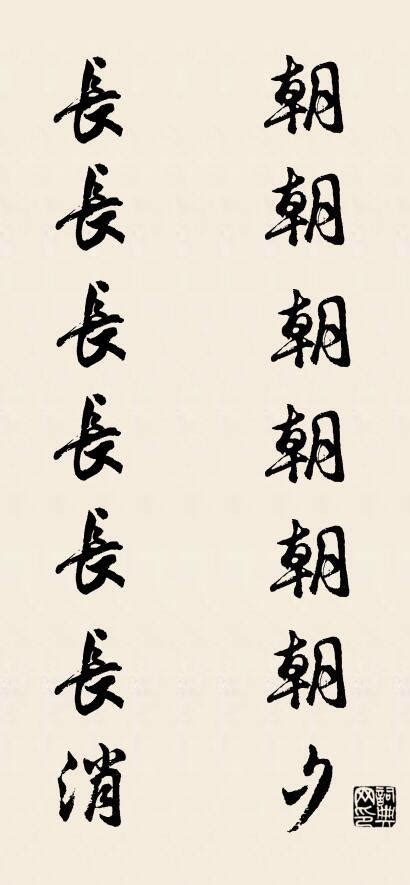 朝朝朝朝朝朝夕
長長長長長長消
詞典網印